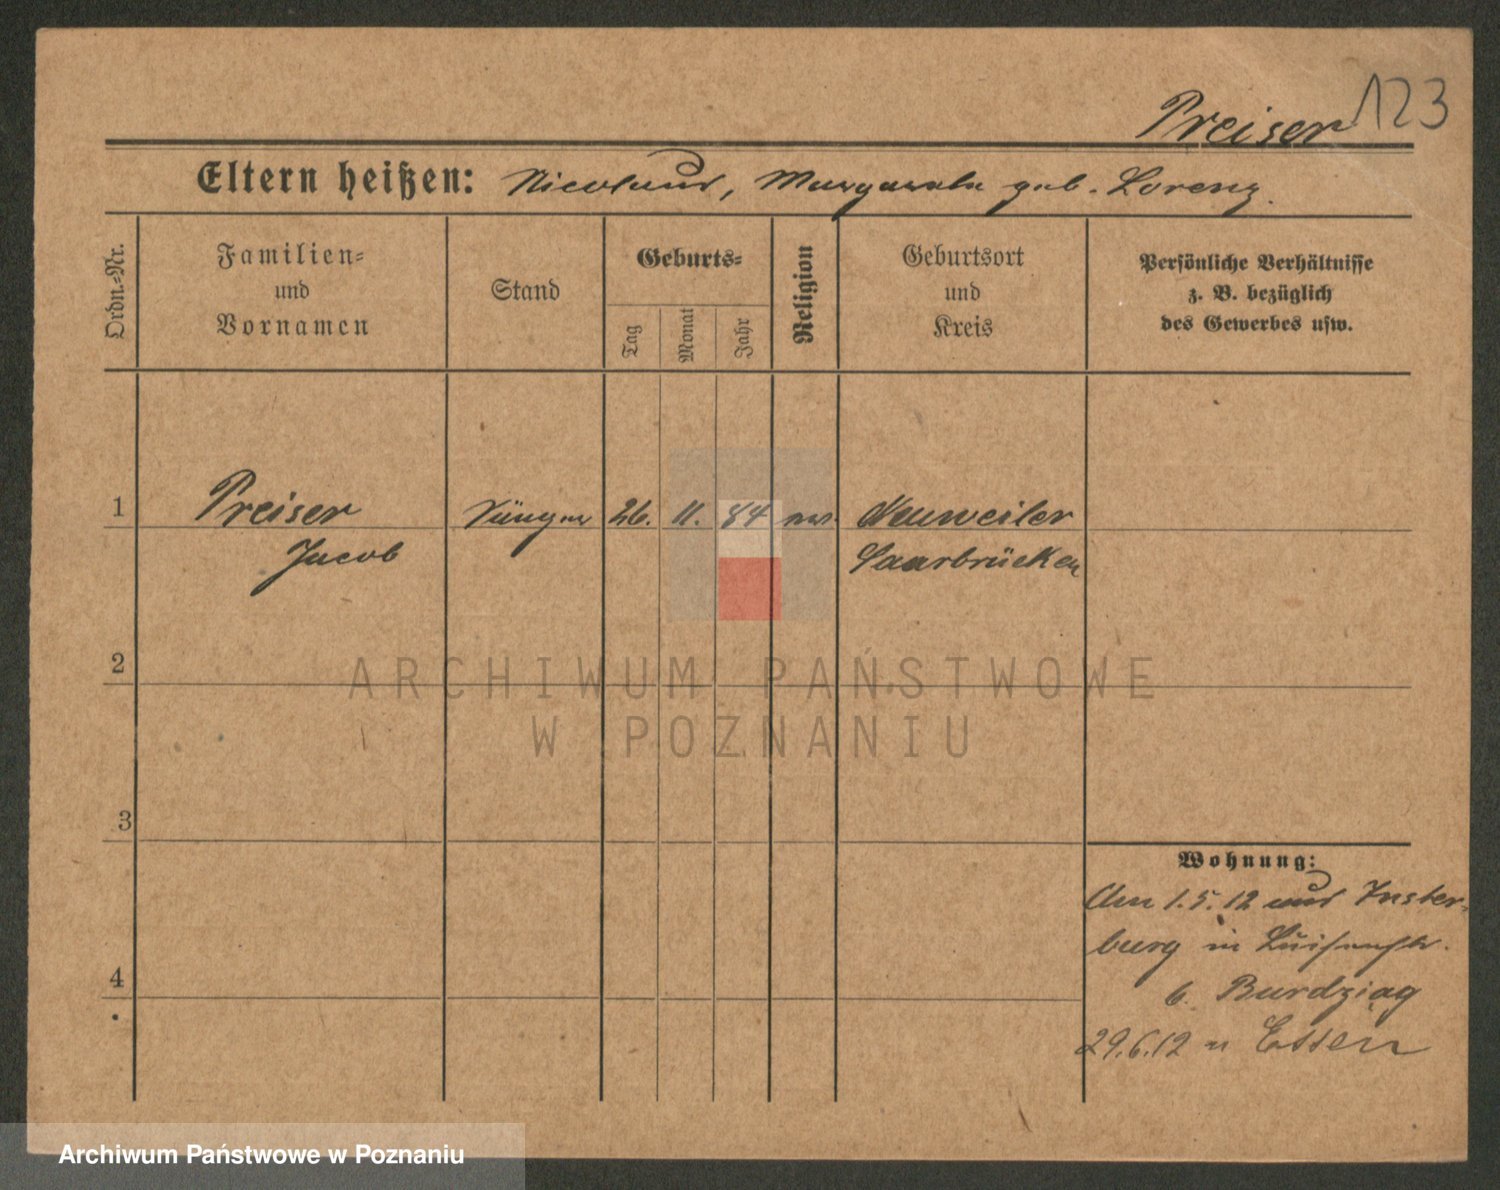 Preiser 123
Eltern heißen: Nicolaus, Margareta geb. Lorenz.
Ordn.-Nr.
Familien-
und
Vornamen
Stand
Geburts-
Tag
Monat
Jahr
Religion
Geburtsort
und
Kreis
Persönliche Verhältnisse
z. B. bezüglich
des Gewerbes usw.
1 Preiser Sänger 26. 11. 84 Neuweiler
Jacob Saarbrücken
2
3
4
Wohnung:
Am 1.5.12 aus Inster-
burg in Luisenstr.
6. Burdziag
29.6.12 n Essen
ARCHIWUM PAŃSTWOWE
W POZNANIU
Archiwum Państwowe w Poznaniu